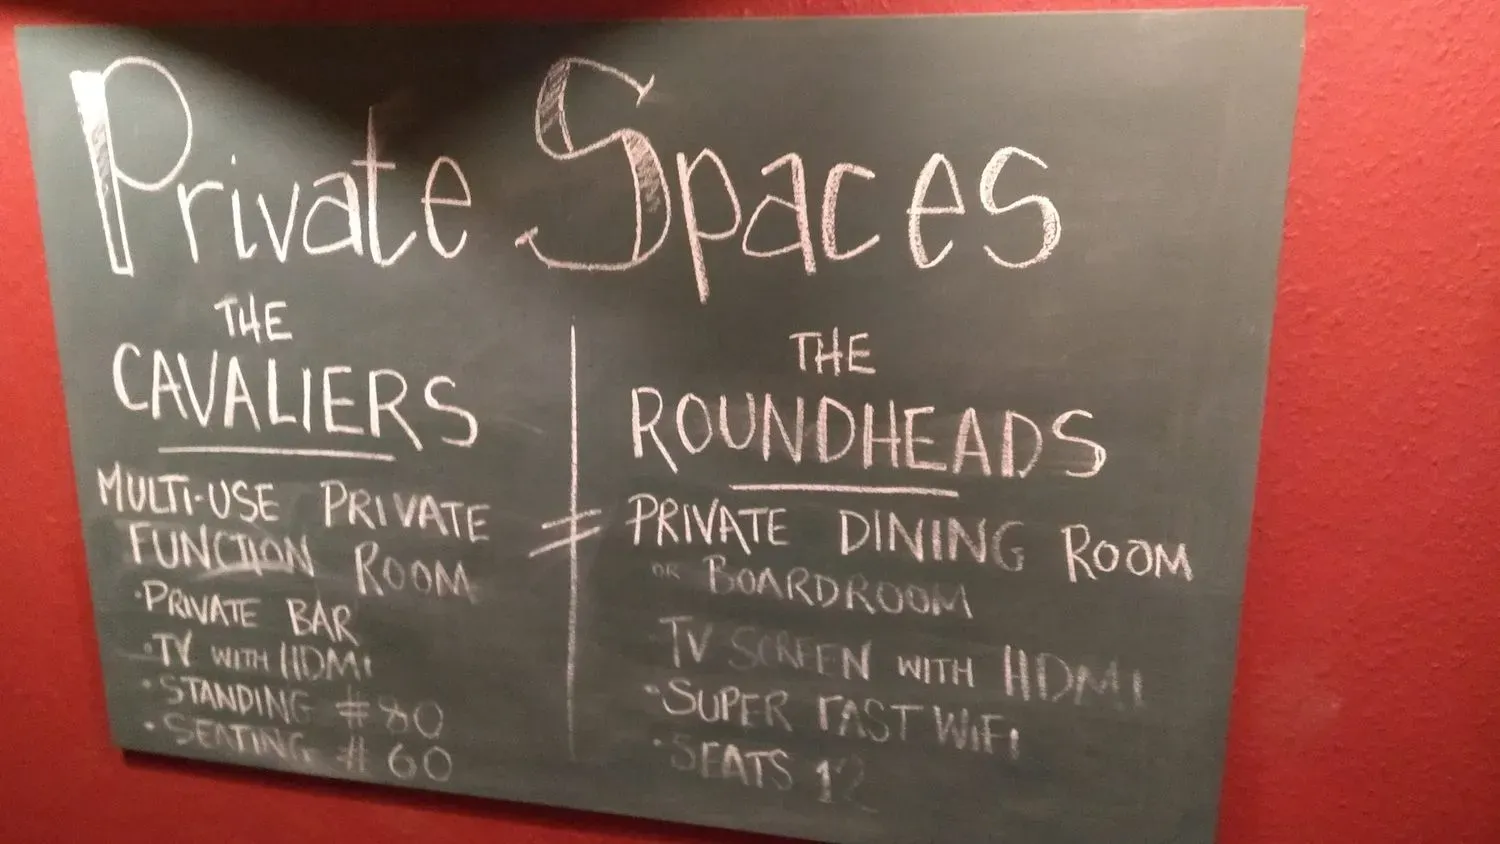 Private Spaces
THE
CAVALIERS
MULTI-USE PRIVATE
FUNCTION ROOM
• PRIVATE BAR
• TV WITH HDMI
• STANDING # 80
• SEATING # 60
THE
ROUNDHEADS
PRIVATE DINING ROOM
OR BOARDROOM
TV SCREEN WITH HDMI
• SUPER FAST WIFI
• SEATS 12